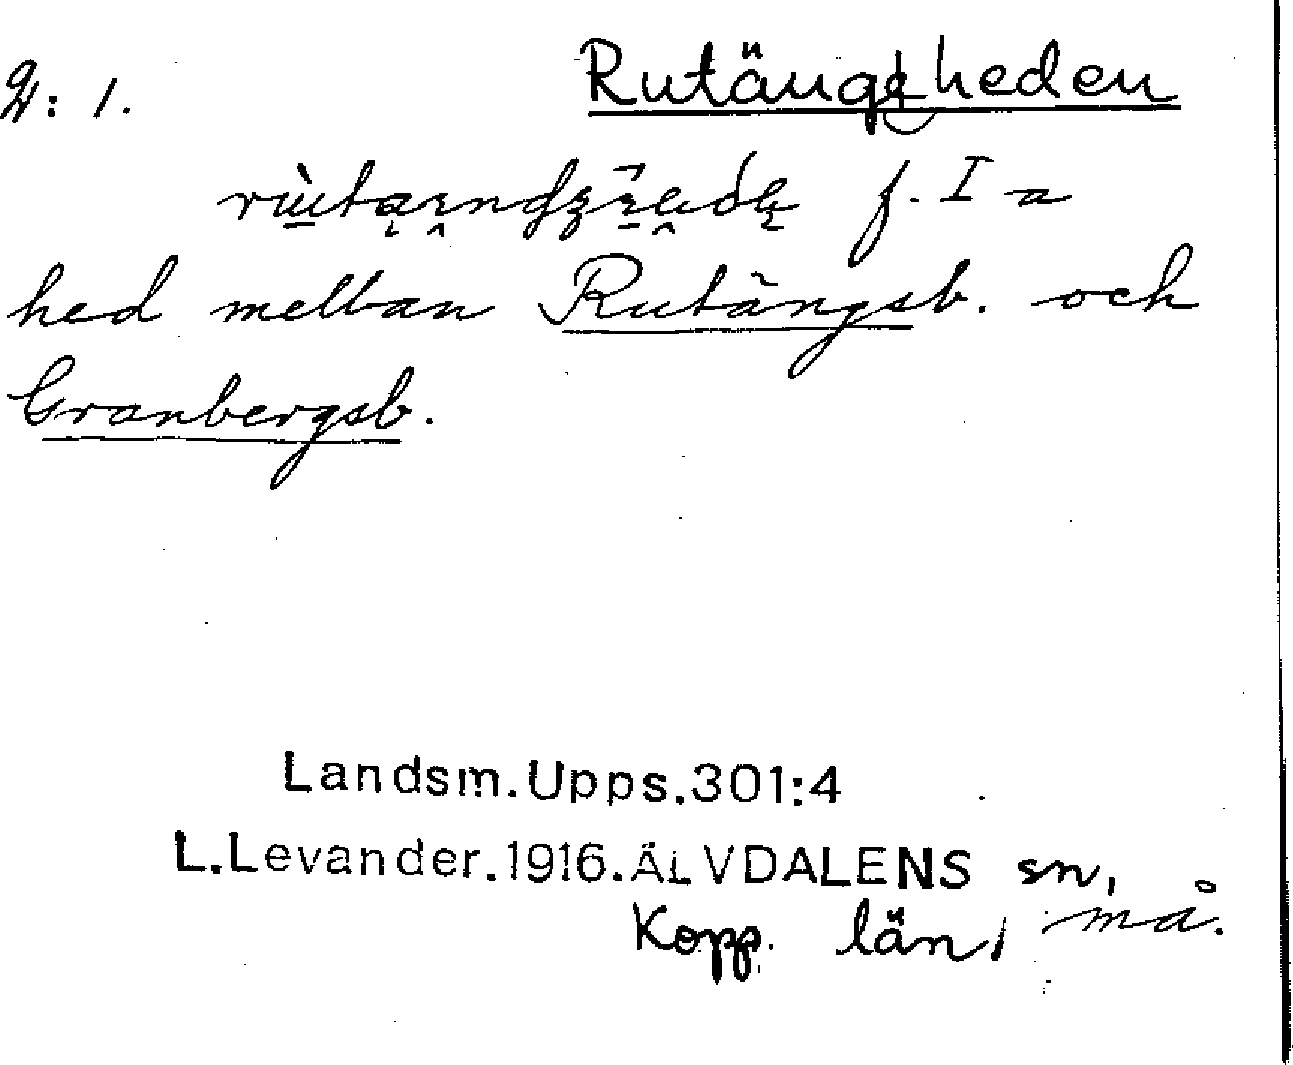 : 1.
Rutängsheden
f. I a
hed mellan Rutängsb. och
Granbergsb.
Landsm.Upps.301:4
L.Levander.1916.ÄLVDALENS sn,
Kopp. län, må.